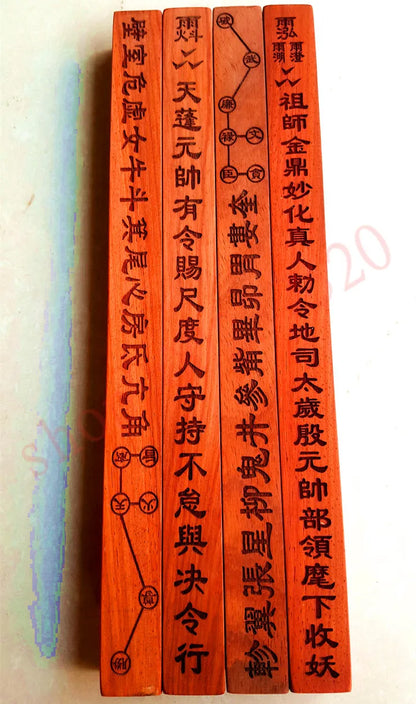 祖師金鼎妙化真人勅令地司太歲殷元帥部領麾下收妖
破
武
廉
祿 文
貪
奎婁胃昴畢觜參井鬼柳星張翼軫
天蓬元帥有令賜尺度人守持不怠與决令行
壁室危虛女牛斗箕尾心房氐亢角
天 火